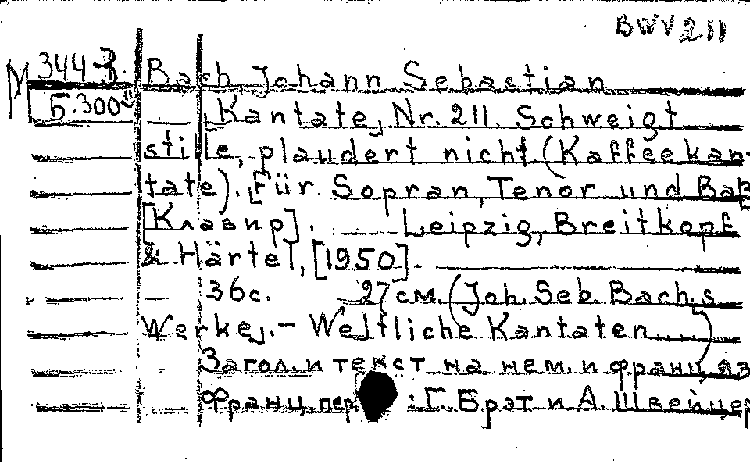 BWV 211
М 344-3. Bach Johann Sebastian
Б.300 Kantate, Nr. 211. Schweigt
stille, plaudert nicht (Kaffeekan-
tate). [Für Sopran, Tenor und Baß
[Клавир]. Leipzig, Breitkopf
& Härtel, [1950].
36с. 27 см. (Joh. Seb. Bach.s
Werke). - Weltliche Kantaten)
Загол. и текст на нем. и франц. яз
Франц. пер : Г. Брэт и А. Швейцер